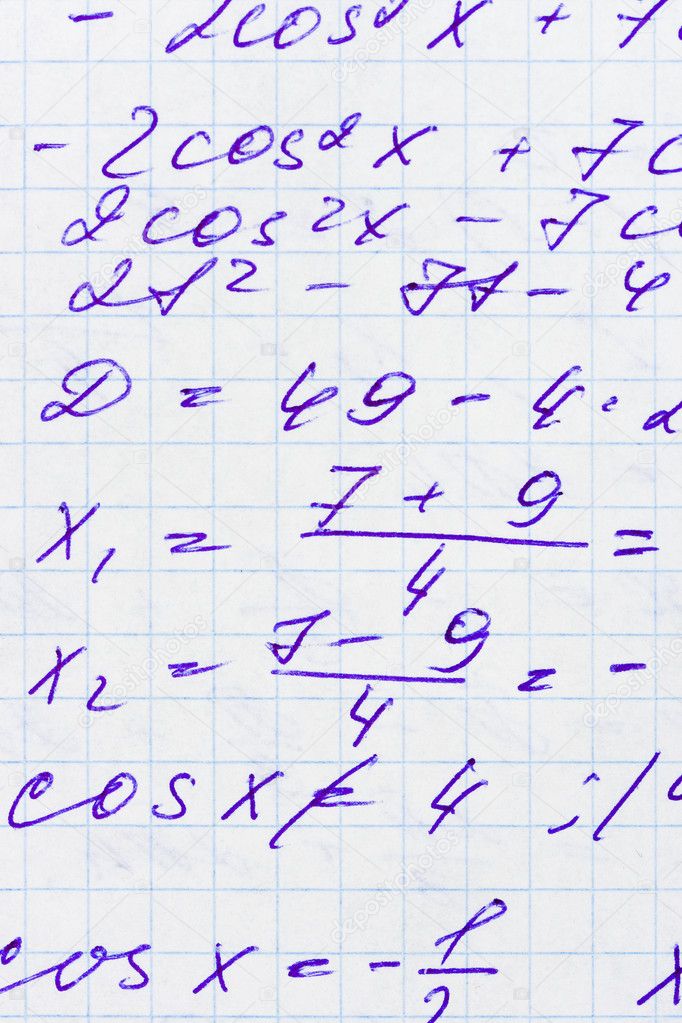 - 2cos² x + 7
- 2cos² x + 7c
2cos²x - 7c
2t² - 7t - 4
D = 49 - 4 · 2
x₁ = (7 + 9)/4 =
x₂ = (7 - 9)/4 = -
cos x ≠ 4 ; /
cos x = - 1/2 x